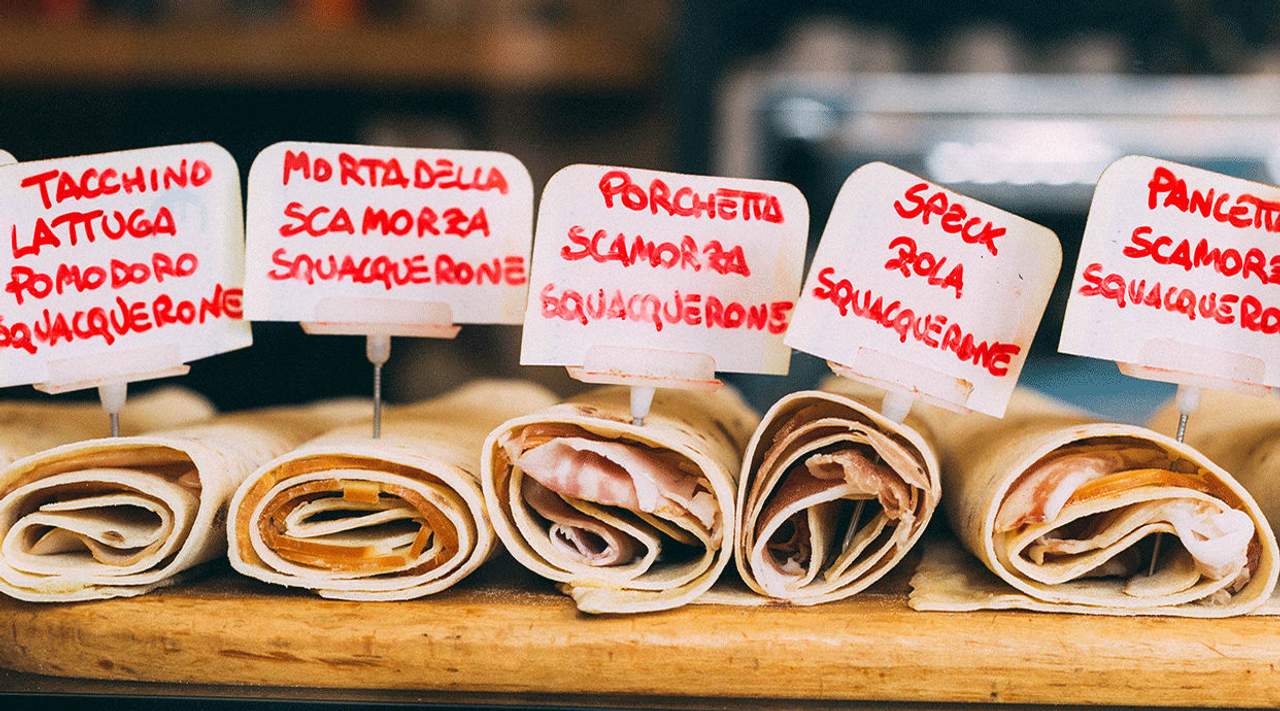 TACCHINO
LATTUGA
POMODORO
SQUACQUERONE
MORTADELLA
SCAMORZA
SQUACQUERONE
PORCHETTA
SCAMORZA
SQUACQUERONE
SPECK
ZOLA
SQUACQUERONE
PANCETT
SCAMORZ
SQUACQUERO